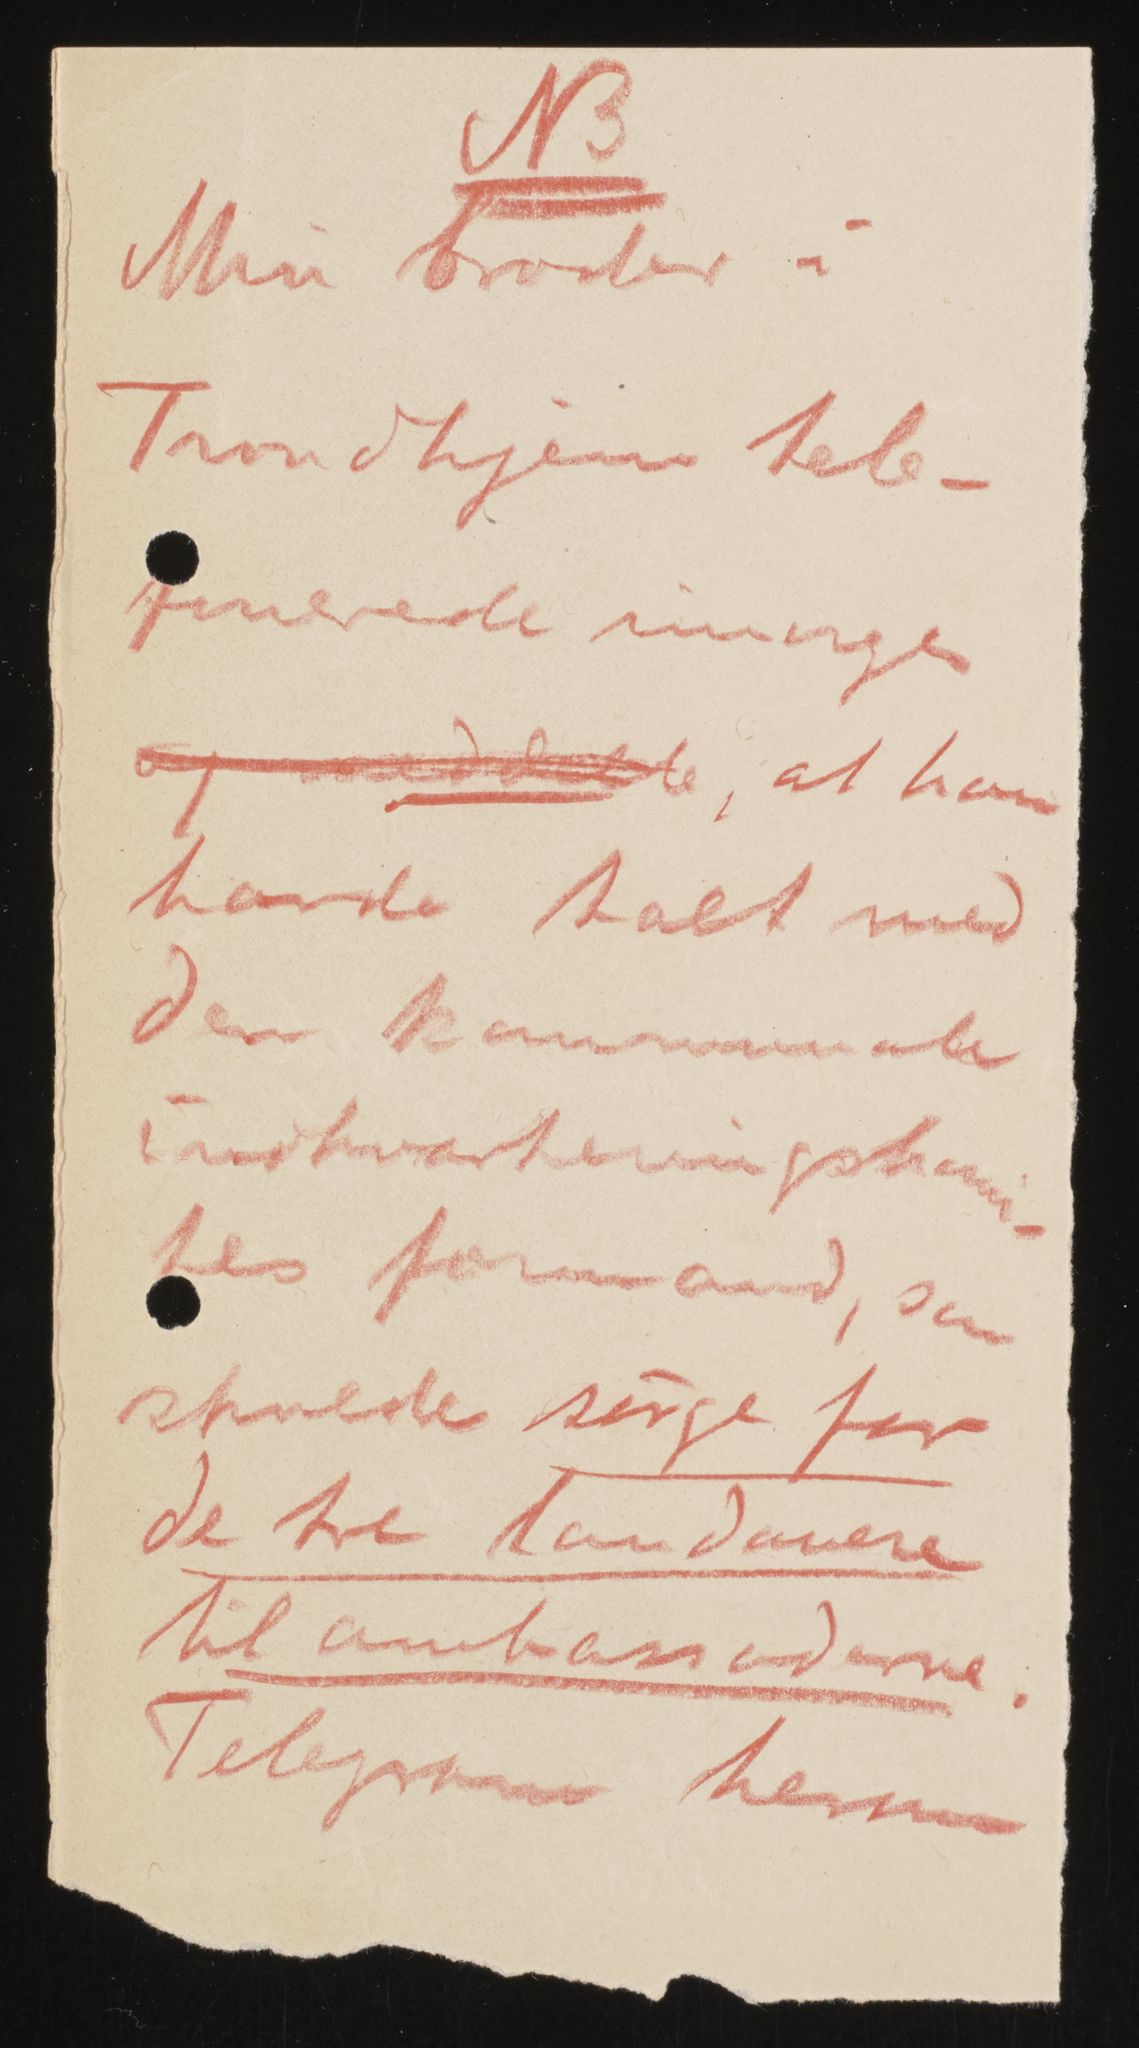 NB
Min broder i
Trondhjem tele-
fonerede imorges
og meddelte, at han
havde talt med
den kommunale
indkvarteringskomi-
tes formand, som
skulde sørge for
de tre landauere
til ambassaderne.
Telegram herom